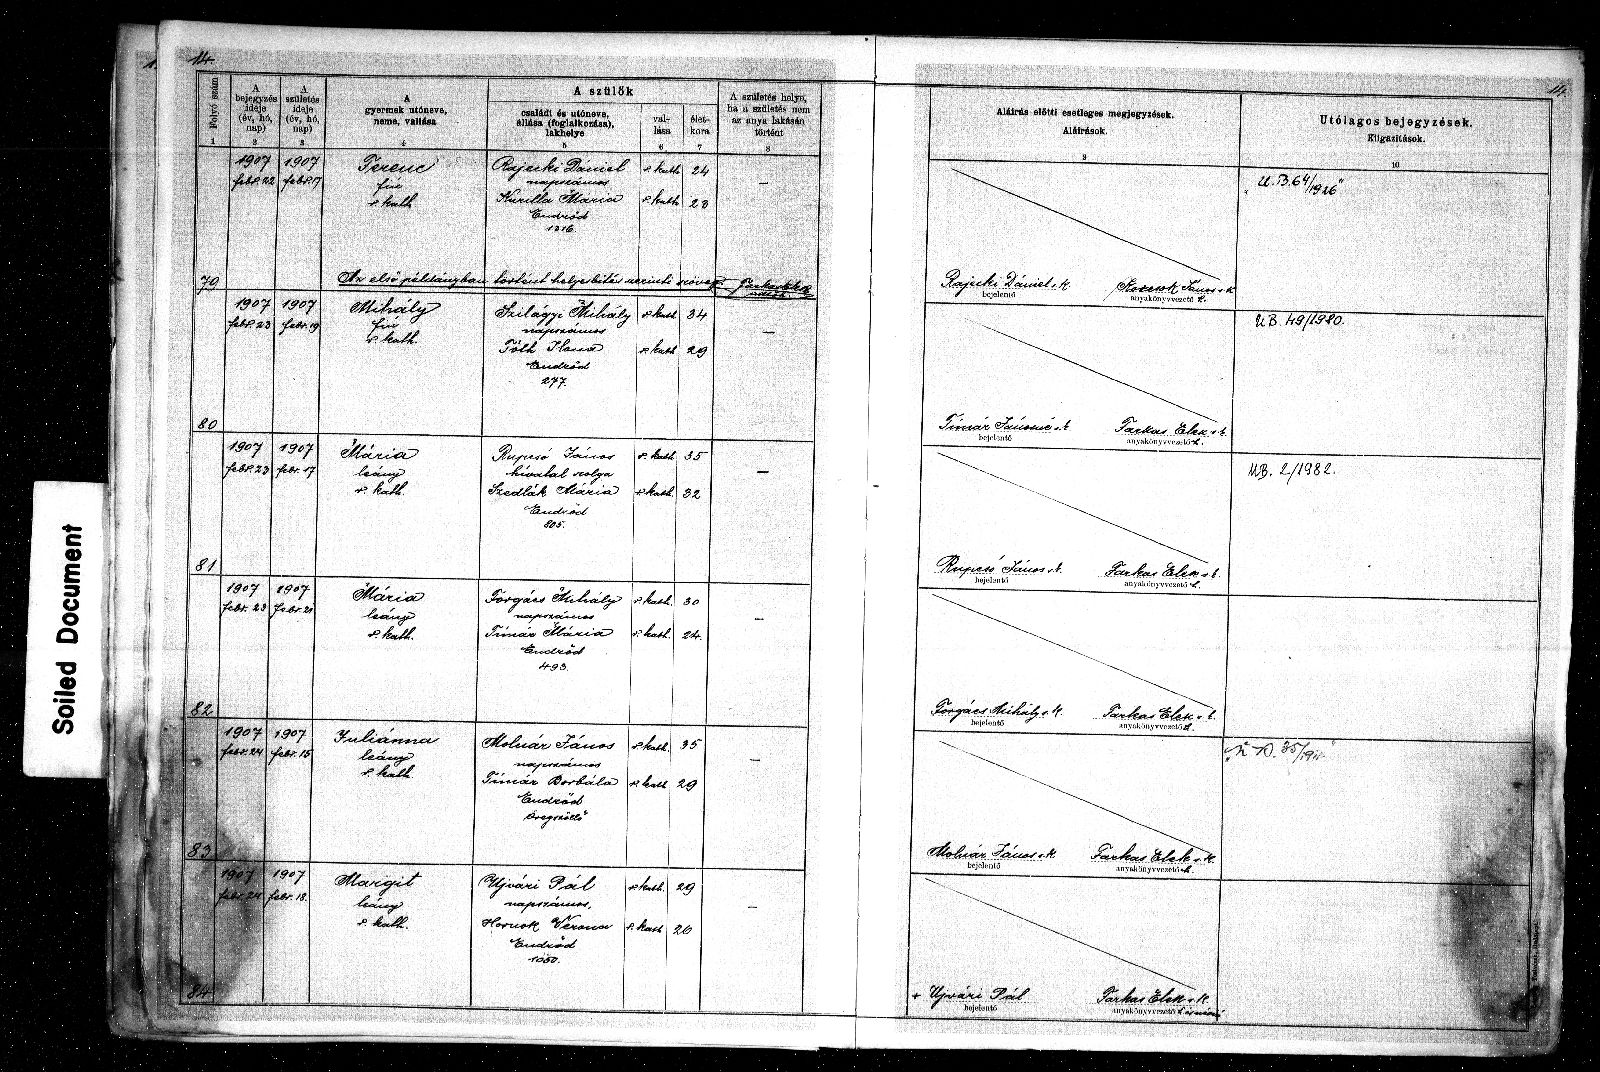 14.
14.
Folyó szám
A bejegyzés ideje (év, hó, nap)
A születés ideje (év, hó, nap)
A gyermek utóneve, neme, vallása
A szülők
családi és utóneve, állása (foglalkozása), lakhelye
vallása
életkora
A születés helye, ha a születés nem az anya lakásán történt
Aláírás előtti esetleges megjegyzések.
Aláírások.
Utólagos bejegyzések.
Kiigazítások.
1 2 3 4 5 6 7 8 9 10
79
1907 febr. 22
1907 febr. 17
Ferenc
fiú
r. kath.
Rajecki Dániel r. kath. 24
napszámos
Kurilla Mária r. kath. 23
Endrőd
1216.
—
Az első példányban történt helyesbítés szerinti szöveg.
Rajecki Dániel s. k.
bejelentő
anyakönyvvezető h.
U.B. 64/1926
80
1907 febr. 23
1907 febr. 19
Mihály
fiú
r. kath.
Szilágyi Mihály r. kath. 34
napszámos
Tóth Ilona r. kath. 29
Endrőd
277.
—
Tímár Jánosné s. k.
bejelentő
Farkas Elek s. k.
anyakönyvvezető h.
UB. 49/1980.
81
1907 febr. 23
1907 febr. 17
Mária
leány
r. kath.
Rupcsó János r. kath. 35
hivatal szolga
Szedlák Mária r. kath. 32
Endrőd
805.
—
Rupcsó János s. k.
bejelentő
Farkas Elek s. k.
anyakönyvvezető h.
UB. 2/1982.
82
1907 febr. 23
1907 febr. 21
Mária
leány
r. kath.
Forgács Mihály r. kath. 30
napszámos
Tímár Mária r. kath. 24.
Endrőd
493.
—
Forgács Mihály s. k.
bejelentő
Farkas Elek s. k.
anyakönyvvezető h.
83
1907 febr. 24
1907 febr. 15
Juliánna
leány
r. kath.
Molnár János r. kath. 35
napszámos
Tímár Borbála r. kath. 29
Endrőd
Öregszőllő
—
Molnár János s. k.
bejelentő
Farkas Elek s. k.
anyakönyvvezető h.
84
1907 febr. 24
1907 febr. 18.
Margit
leány
r. kath.
Ujvári Pál r. kath. 29
napszámos,
Hornok Verona r. kath. 20
Endrőd
1050.
—
+ Ujvári Pál
bejelentő
Farkas Elek s. k.
anyakönyvvezető h.
Soiled Document